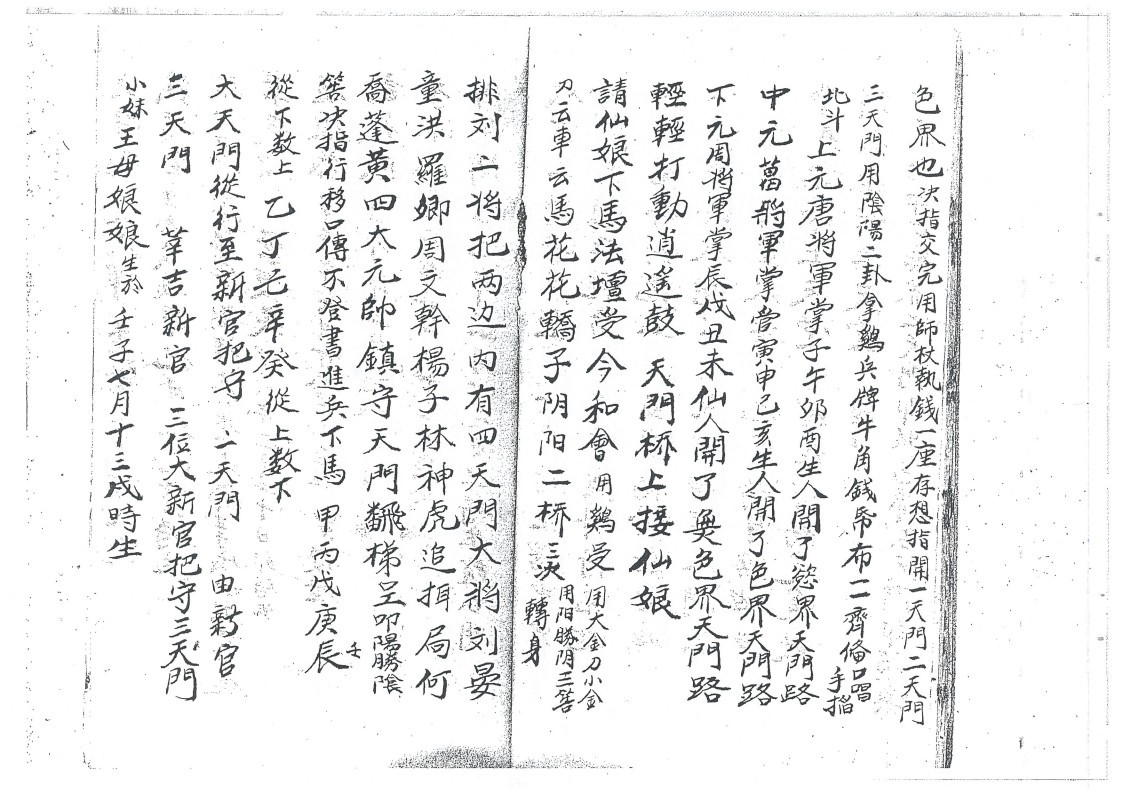 色界也决指交完用師杖執錢一座存想指開一天門二天門
三天門用陰陽二卦拿鷄兵牌牛角錢帋布一一齊倫口唱 手搯
北斗 上元唐將軍掌子午夘酉生人開了慾界天門路
中元葛將軍掌管寅申己亥生人開了色界天門路
下元周將軍掌辰戊丑未仙人開了無色界天門路
輕輕打動逍遙鼓 天門桥上接仙娘
請仙娘下馬法壇受今和會 用鷄受 用大金刀小金
刀 云車云馬花花轎子阴阳二桥 三次 用阳勝阴三筶 轉身
排刘二將把两边内有四天門大將刘晏
童洪羅卿周文幹楊子林神虎追捐局何
喬蓬黄四大元帥鎮守天門翻梯呈叩陽勝陰
筶决指行移口傳不登書進兵下馬 甲丙戊庚辰壬
從下数上 乙丁己辛癸從上数下
大天門從行至新官把守 二天門 由新官
三天門 莘吉新官 三位大新官把守三天門
小妹王母娘娘生於 壬子七月十三戌時生